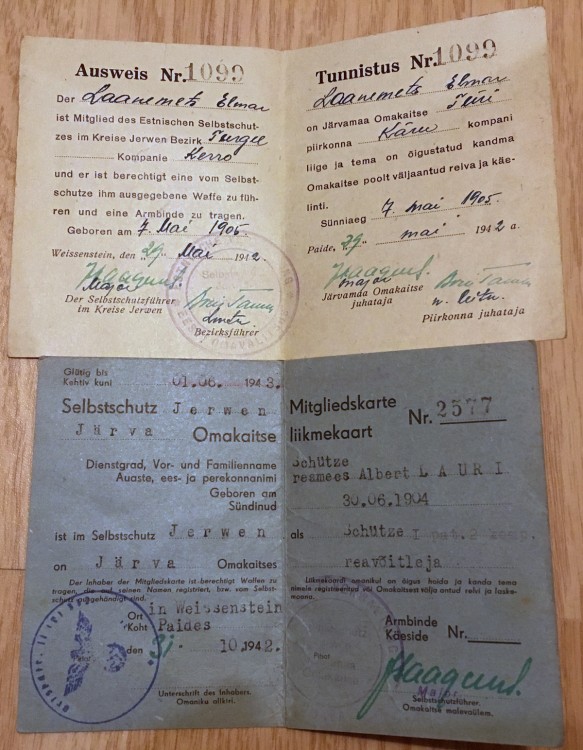 Ausweis Nr. 1099
Der Laanemets Elmar
ist Mitglied des Estnischen Selbstschut-
zes im Kreise Jerwen Bezirk Turgel
Kompanie Kerro
und er ist berechtigt eine vom Selbst-
schutze ihm ausgegebene Waffe zu füh-
ren und eine Armbinde zu tragen.
Geboren am 7. Mai 1905.
Weissenstein, den "29" Mai 1942.
Major
Der Selbstschutzführer
im Kreise Jerwen
Bezirksführer
Tunnistus Nr. 1099
Laanemets Elmar
on Järvamaa Omakaitse Türi
piirkonna Käru kompani
liige ja tema on õigustatud kandma
Omakaitse poolt väljaantud relva ja käe-
linti.
Sünniaeg 7. mai 1905.
Paide, "29" mai 1942 a.
major
Järvamaa Omakaitse
juhataja
n. leitn.
Piirkonna juhataja
Gültig bis
Kehtiv kuni 01.06. 1943.
Selbstschutz Jerwen
Järva Omakaitse
Dienstgrad, Vor- und Familienname
Auaste, ees- ja perekonnanimi
Geboren am
Sündinud
ist im Selbstschutz Jerwen
on Järva Omakaitses
Der Inhaber der Mitgliedskarte ist berechtigt Waffen zu
tragen, die auf seinen Namen registriert, bzw. vom Selbst-
schutz ausgehändigt sind.
Ort in Weissenstein
Koht Paides
den 31. 10.1942.
Unterschrift des Inhabers.
Omaniku allkiri.
Mitgliedskarte
liikmekaart Nr. 2577
Schütze
reamees Albert LAURI
30.06.1904
als Schütze I bat. 2 komp.
reavõitleja
Liikmekaardi omanikul on õigus hoida ja kanda tema
nimele registreeritud või Omakaitsest välja antud relvi ja laske-
moona.
Armbinde
Käeside Nr.
Major
Selbstschutzführer.
Omakaitse malevaülem.